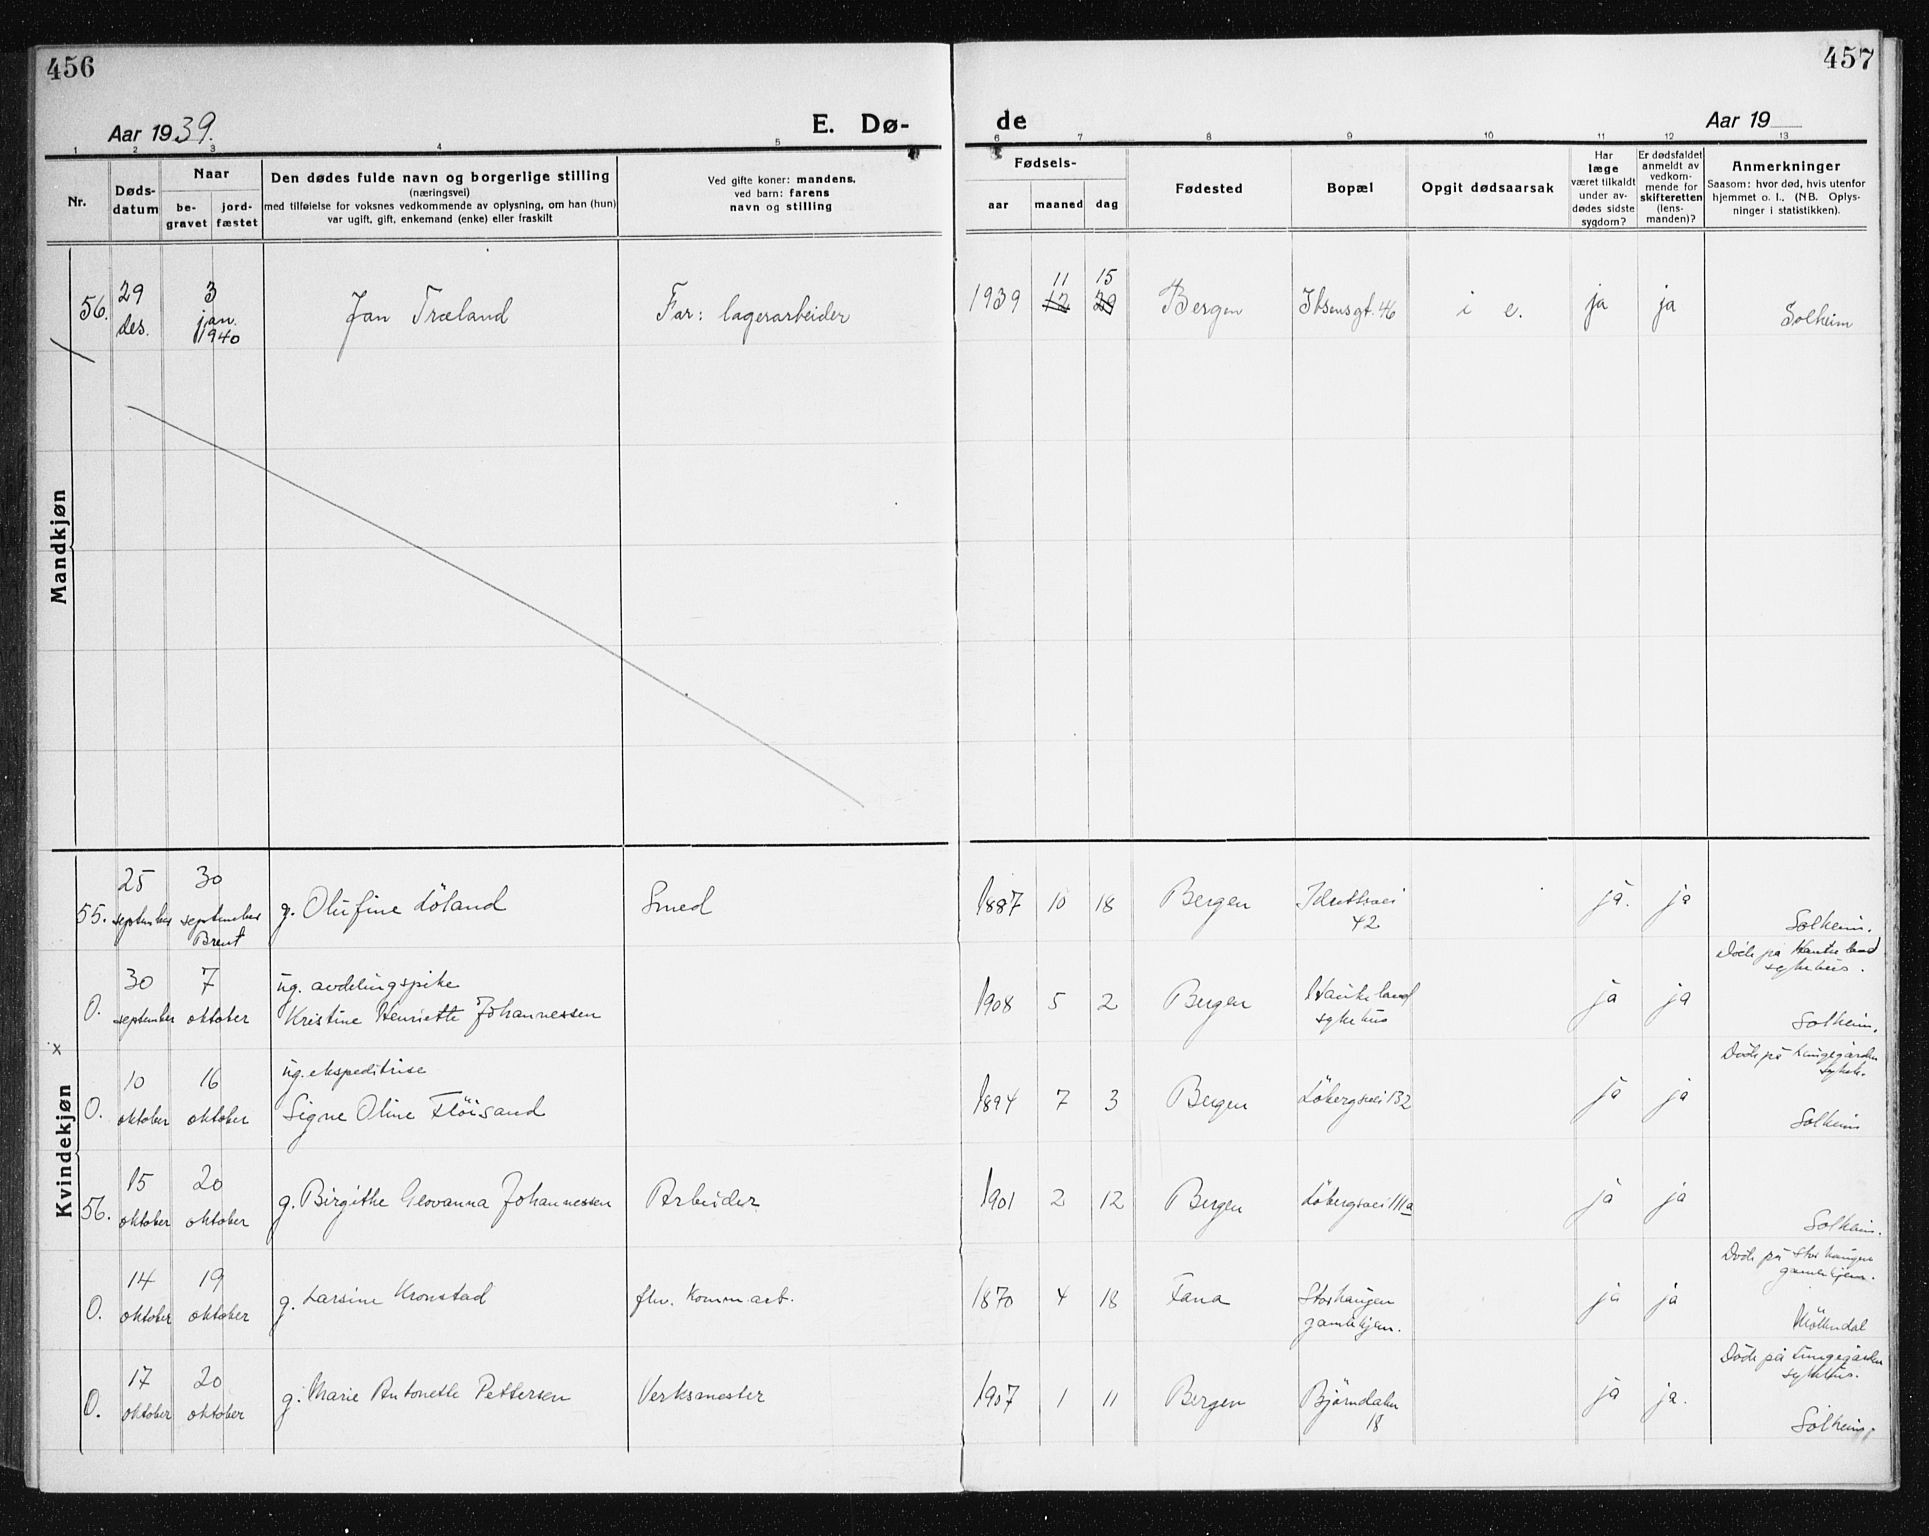 456
457
Aar 1939.
E. Dø-
de
Aar 19
1 2 3 4 5 6 7 8 9 10 11 12 13
Nr.
Døds-
datum
Naar
be-
gravet
jord-
fæstet
Den dødes fulde navn og borgerlige stilling
(næringsvei)
med tilføielse for voksnes vedkommende av oplysning, om han (hun)
var ugift, gift, enkemand (enke) eller fraskilt
Ved gifte koner: mandens,
ved barn: farens
navn og stilling
Fødsels-
aar
maaned
dag
Fødested
Bopæl
Opgit dødsaarsak
Har
læge
været tilkaldt
under av-
dødes sidste
sygdom?
Er dødsfaldet
anmeldt av
vedkom-
mende for
skifteretten
(lens-
manden)?
Anmerkninger
Saasom: hvor død, hvis utenfor
hjemmet o. l., (NB. Oplys-
ninger i statistikken).
Mandkjøn
56. 29 des. 3 jan. 1940 Jan Træland Far: lagerarbeider 1939 11 15 Bergen Ibsensgt. 46 i e. ja ja Solheim
12 29
Kvindekjøn
55. 25 september 30 september Brent g. Olufine Löland Smed 1887 10 18 Bergen Idrettsvei 42 ja. ja Solheim.
0. 30 september 7 oktober ug. avdelingspike
Kristine Henriette Johannessen 1908 5 2 Bergen Haukeland sykehus ja ja Döde på Haukeland sykehus. Solheim.
x
0. 10 oktober 16 oktober ug. ekspeditrise
Signe Oline Flöisand 1894 7 3 Bergen Löbergsvei 132 ja ja Döde på Lungegården sykeh. Solheim
56. 15 oktober 20 oktober g. Birgithe Geovanna Johannessen Arbeider 1901 2 12 Bergen Löbergsvei 111a ja ja Solheim.
0. 14 oktober 19 oktober g. Larsine Kronstad fhv. Komm.arb. 1870 4 18 Fana Storhaugen gamlehjem. ja ja Döde på Storhaugen gamlehjem. Möllendal
0. 17 oktober 20 oktober g. Marie Antonette Pettersen Verksmester 1907 1 11 Bergen Björndalen 18 ja ja. Döde på Lungegården sykehus. Solheim